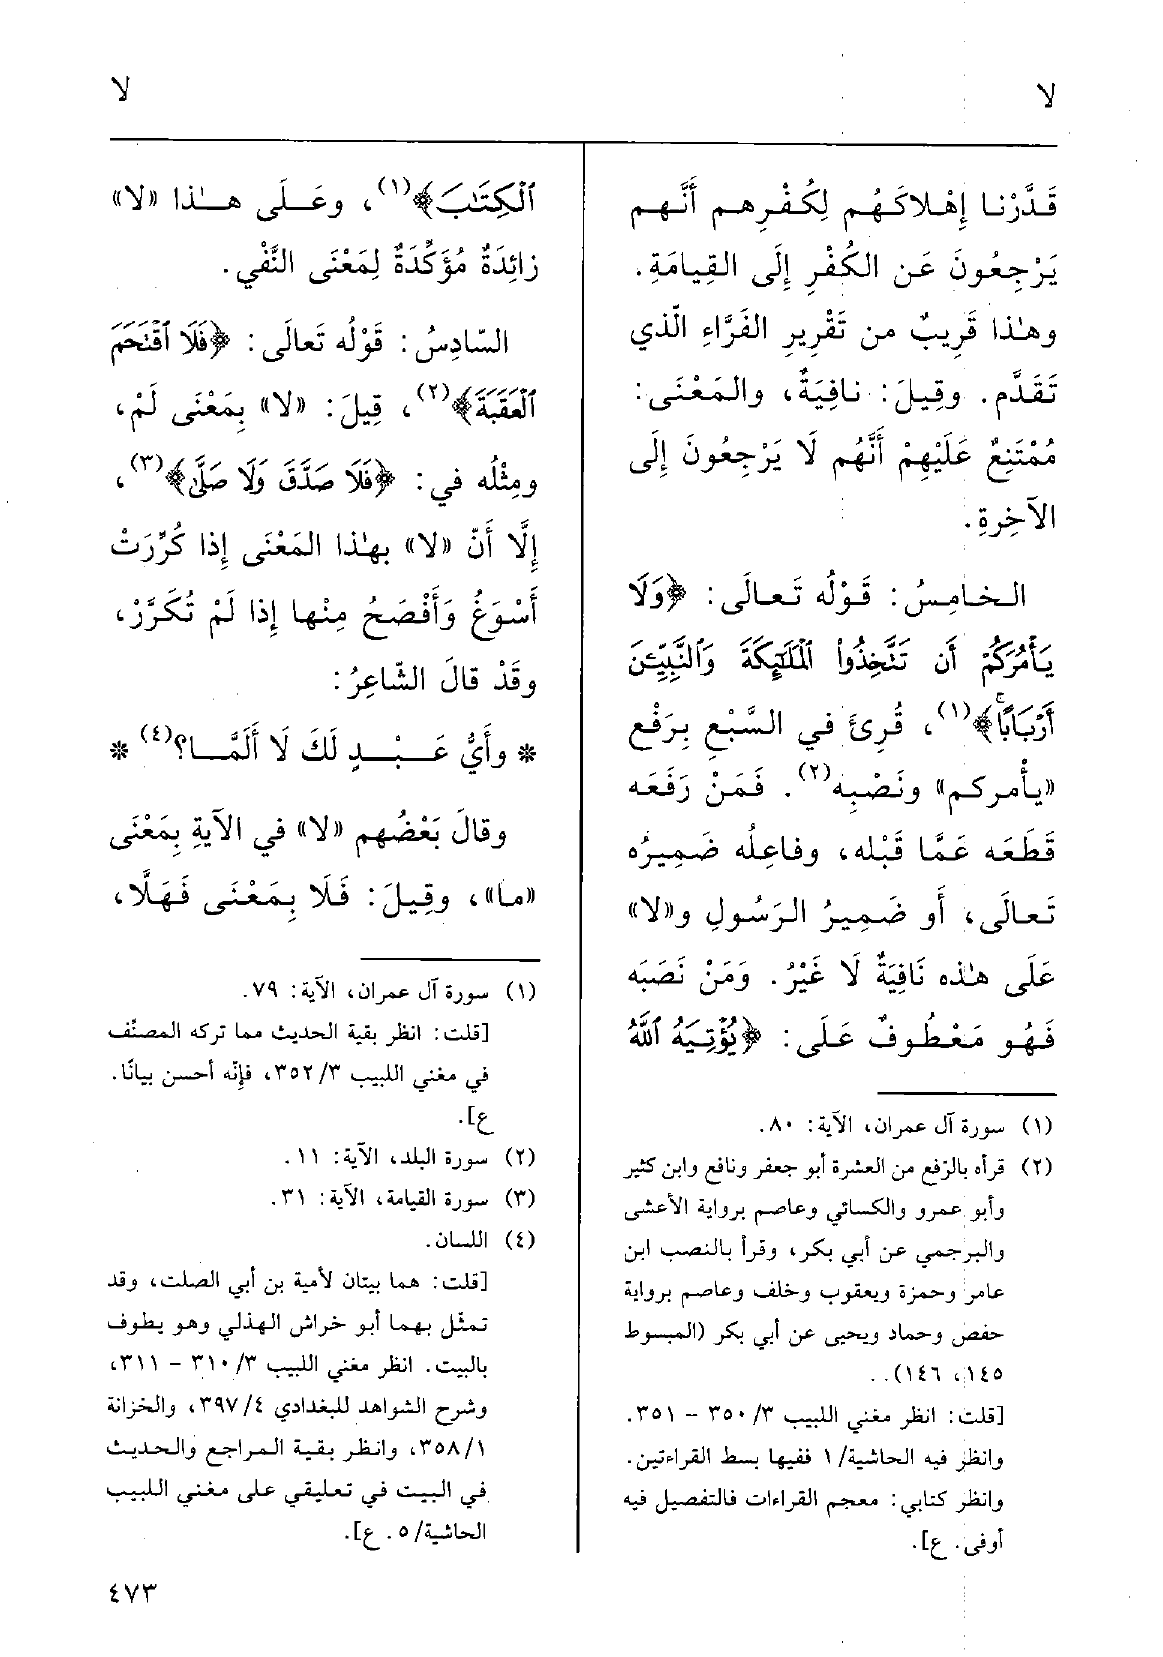 لا
لا
قَدَّرْنـا إهْلاكَهُـم لِكُفْـرِهـم أَنَّـهـم
يَرْجِعُونَ عَـن الكُفْـرِ إلَى القِيـامَةِ.
وهـٰذا قَرِيبٌ من تَقْرِيرِ الفَرَّاءِ الّذي
تَقَدَّم. وقِيلَ: نافِيَةٌ، والمَعْنَى:
مُمْتَنِعٌ عَلَيْهِمْ أَنَّهُم لَا يَرْجِعُونَ إلَى
الآخِرةِ.
الـخـامِـسُ: قَـوْلُه تَـعـالَى: ﴿وَلَا
يَأْمُرَكُمْ أَن تَتَّخِذُواْ ٱلْمَلَـٰٓئِكَةَ وَٱلنَّبِيِّـۧنَ
أَرْبَابًاۗ﴾(١)، قُرِئَ في السَّبْعِ بِرَفْعِ
«يأمركم» ونَصْبِه(٢). فَمَنْ رَفَعَه
قَطَعَه عَمَّا قَبْله، وفاعِلُه ضَمِيرُه
تَعالَى، أو ضَمِيرُ الرَسُولِ و«لا»
عَلَى هـٰذه نَافِيَةٌ لَا غَيْرُ. وَمَنْ نَصَبَه
فَهُو مَعْطُوفٌ عَلَى: ﴿يُؤْتِيَهُ ٱللَّهُ
(١) سورة آل عمران، الآية: ٨٠.
(٢) قرأه بالرفع من العشرة أبو جعفر ونافع وابن كثير
وأبو عمرو والكسائي وعاصم برواية الأعشى
والبرجمي عن أبي بكر، وقرأ بالنصب ابن
عامر وحمزة ويعقوب وخلف وعاصم برواية
حفص وحماد ويحيى عن أبي بكر (المبسوط
١٤٥، ١٤٦)..
[قلت: انظر مغني اللبيب ٣/ ٣٥٠ – ٣٥١.
وانظر فيه الحاشية/ ١ ففيها بسط القراءتين.
وانظر كتابي: معجم القراءات فالتفصيل فيه
أوفى. ع].
ٱلْكِتَـٰبَ﴾(١)، وعَـلَى هـٰذا «لا»
زائِدَةٌ مُؤَكِّدَةٌ لِمَعْنَى النَّفْي.
السّادِسُ: قَوْلُه تَعالَى: ﴿فَلَا ٱقْتَحَمَ
ٱلْعَقَبَةَ﴾(٢)، قِيلَ: «لا» بِمَعْنَى لَمْ،
ومِثْلُه في: ﴿فَلَا صَدَّقَ وَلَا صَلَّىٰ﴾(٣)،
إلَّا أَنّ «لا» بهـٰذا المَعْنَى إذا كُرِّرَتْ
أَسْوَغُ وَأَفْصَحُ مِنْها إذا لَمْ تُكَرَّرْ،
وقَدْ قالَ الشّاعِرُ:
* وأَيُّ عَـبْـدٍ لَكَ لَا أَلَمَّـا؟(٤) *
وقالَ بَعْضُهم «لا» في الآيةِ بِمَعْنَى
«ما»، وقِيلَ: فَلَا بِمَعْنَى فَهَلَّا،
(١) سورة آل عمران، الآية: ٧٩.
[قلت: انظر بقية الحديث مما تركه المصنّف
في مغني اللبيب ٣/ ٣٥٢، فإنّه أحسن بيانًا.
ع].
(٢) سورة البلد، الآية: ١١.
(٣) سورة القيامة، الآية: ٣١.
(٤) اللسان.
[قلت: هما بيتان لأمية بن أبي الصلت، وقد
تمثّل بهما أبو خراش الهذلي وهو يطوف
بالبيت. انظر مغني اللبيب ٣/ ٣١٠ – ٣١١،
وشرح الشواهد للبغدادي ٤/ ٣٩٧، والخزانة
١/ ٣٥٨، وانظر بقية المراجع والحديث
في البيت في تعليقي على مغني اللبيب
الحاشية/ ٥. ع].
٤٧٣